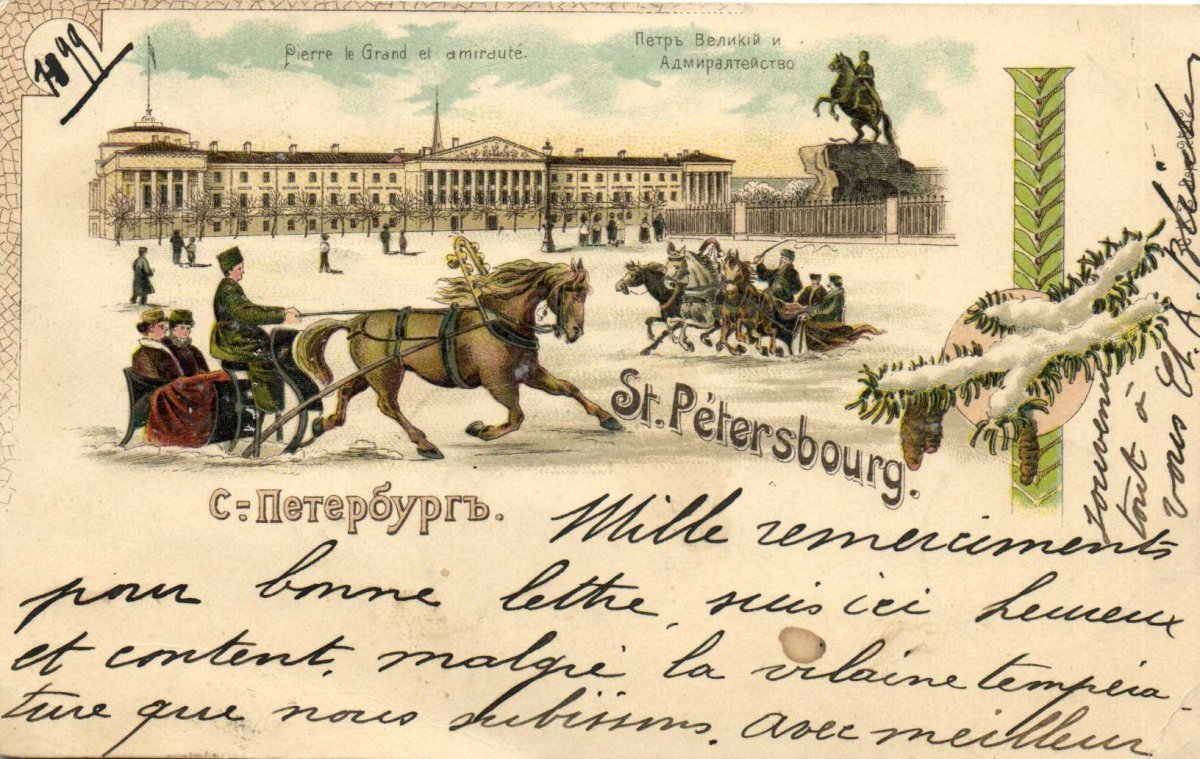 1899
Pierre le Grand et amirauté.
Петръ Великій и
Адмиралтейство
St. Pétersbourg.
С:-Петербургъ.
Mille remerciments
pour bonne lettre, suis ici heureux
et content, malgré la vilaine tempéra-
ture que nous subissons, avec meilleur
souvenir
tout à
vous